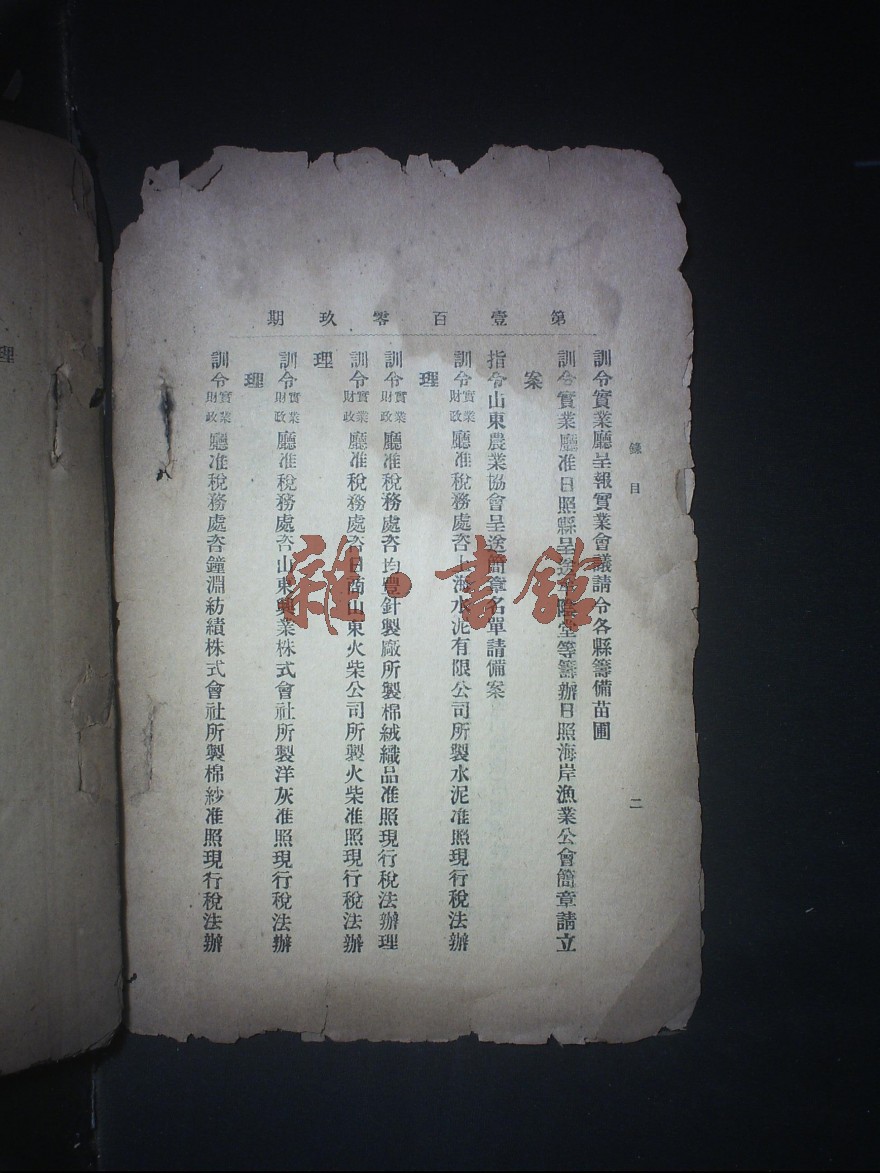 第壹百零玖期
目錄
二
訓令實業廳呈報實業會議請令各縣籌備苗圃
訓令實業廳准日照縣呈送 陰堂等籌辦日照海岸漁業公會簡章請立
案
指令山東農業協會呈送簡章名單請備案
訓令實業財政廳准稅務處咨上海水泥有限公司所製水泥准照現行稅法辦
理
訓令實業財政廳准稅務處咨均豐針製廠所製棉絨織品准照現行稅法辦理
訓令實業財政廳准稅務處咨日商山東火柴公司所製火柴准照現行稅法辦
理
訓令實業財政廳准稅務處咨山東興業株式會社所製洋灰准照現行稅法辦
理
訓令實業財政廳准稅務處咨鐘淵紡績株式會社所製棉紗准照現行稅法辦
理
雜·書館